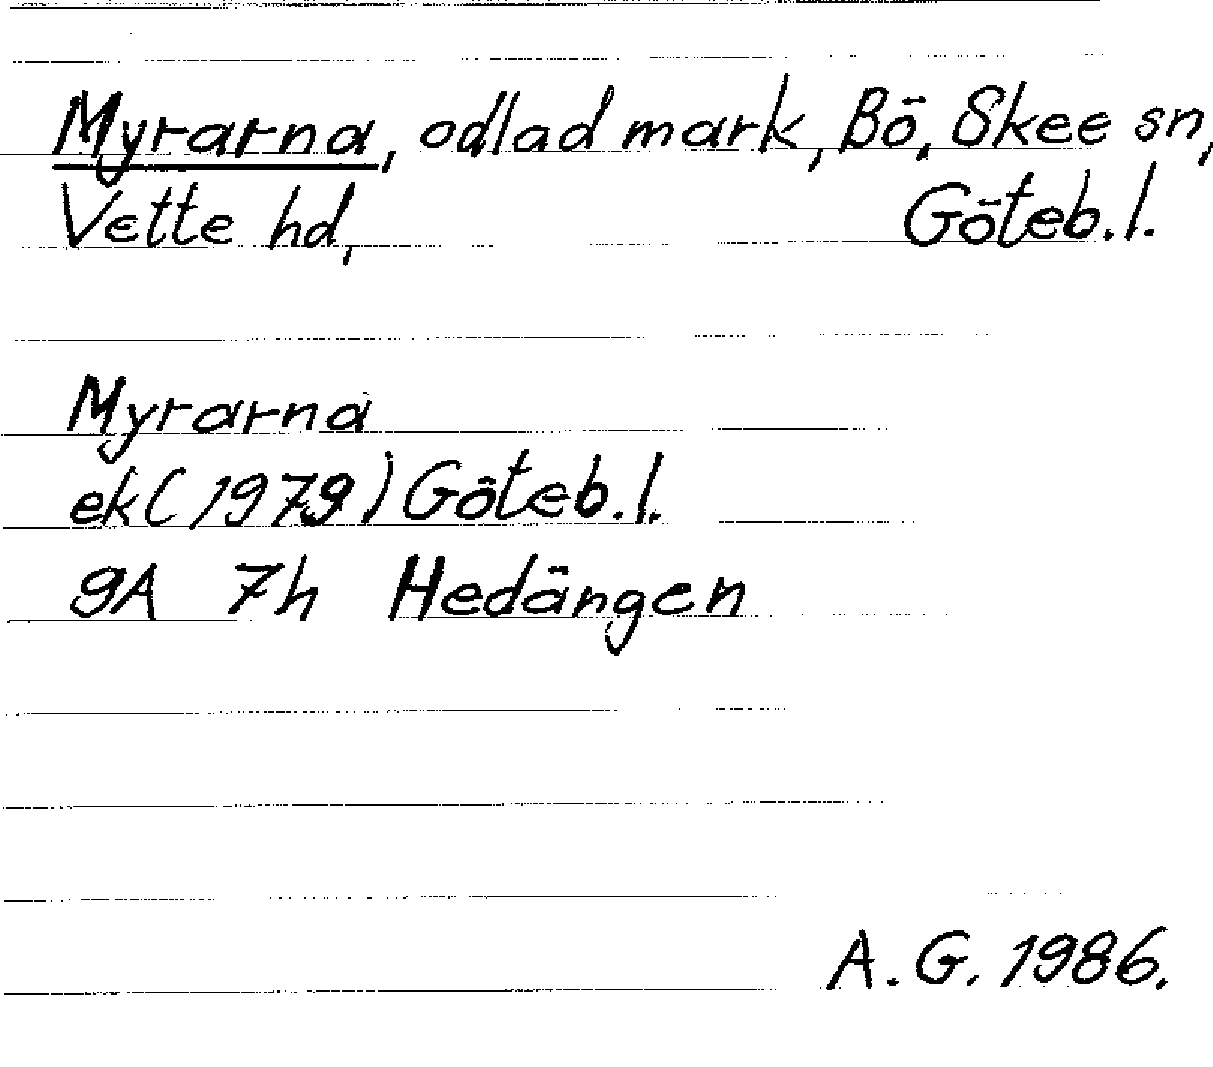 Myrarna, odlad mark, Bö, Skee sn,
Vette hd, Göteb. l.
Myrarna
ek (1979) Göteb. l.
9A 7h Hedängen
A. G. 1986.